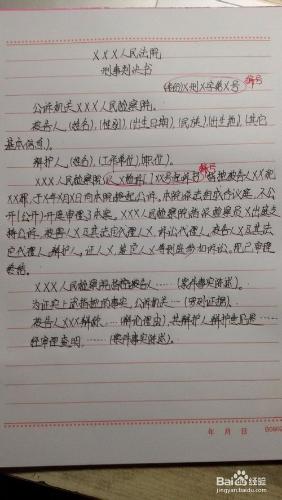 XXX人民法院
刑事判决书
(年份)X刑X字第X号 编号
公诉机关XXX人民检察院。
被告人(姓名),(性别),(出生日期),(民族),(出生地),(其它
基本信息)。
辩护人(姓名),(工作单位),(职位)。
编号
XXX人民检察院以X检诉[]XX号起诉书指控被告人XX犯
XX罪,于X年X月X日向本院提起公诉。本院依法组成合议庭,不公
开(公开)开庭审理了本案。XXX人民检察院指派检察员X出庭支
持公诉,被害人X及其法定代理人X、诉讼代理人,被告人X及其法
定代理人,辩护人,证人X,鉴定人X等到庭参加诉讼。现已审理
终结。
XXX人民检察院指控被告人……(案件事实陈述)。
为证实上述指控的事实,公诉机关…(罗列证据)。
被告人XXX辩称……(辩论理由),其辩护人辩护意见是……
经审理查明,……(案件事实陈述)。
年 月 日
Baidu经验
jingyan.baidu.com